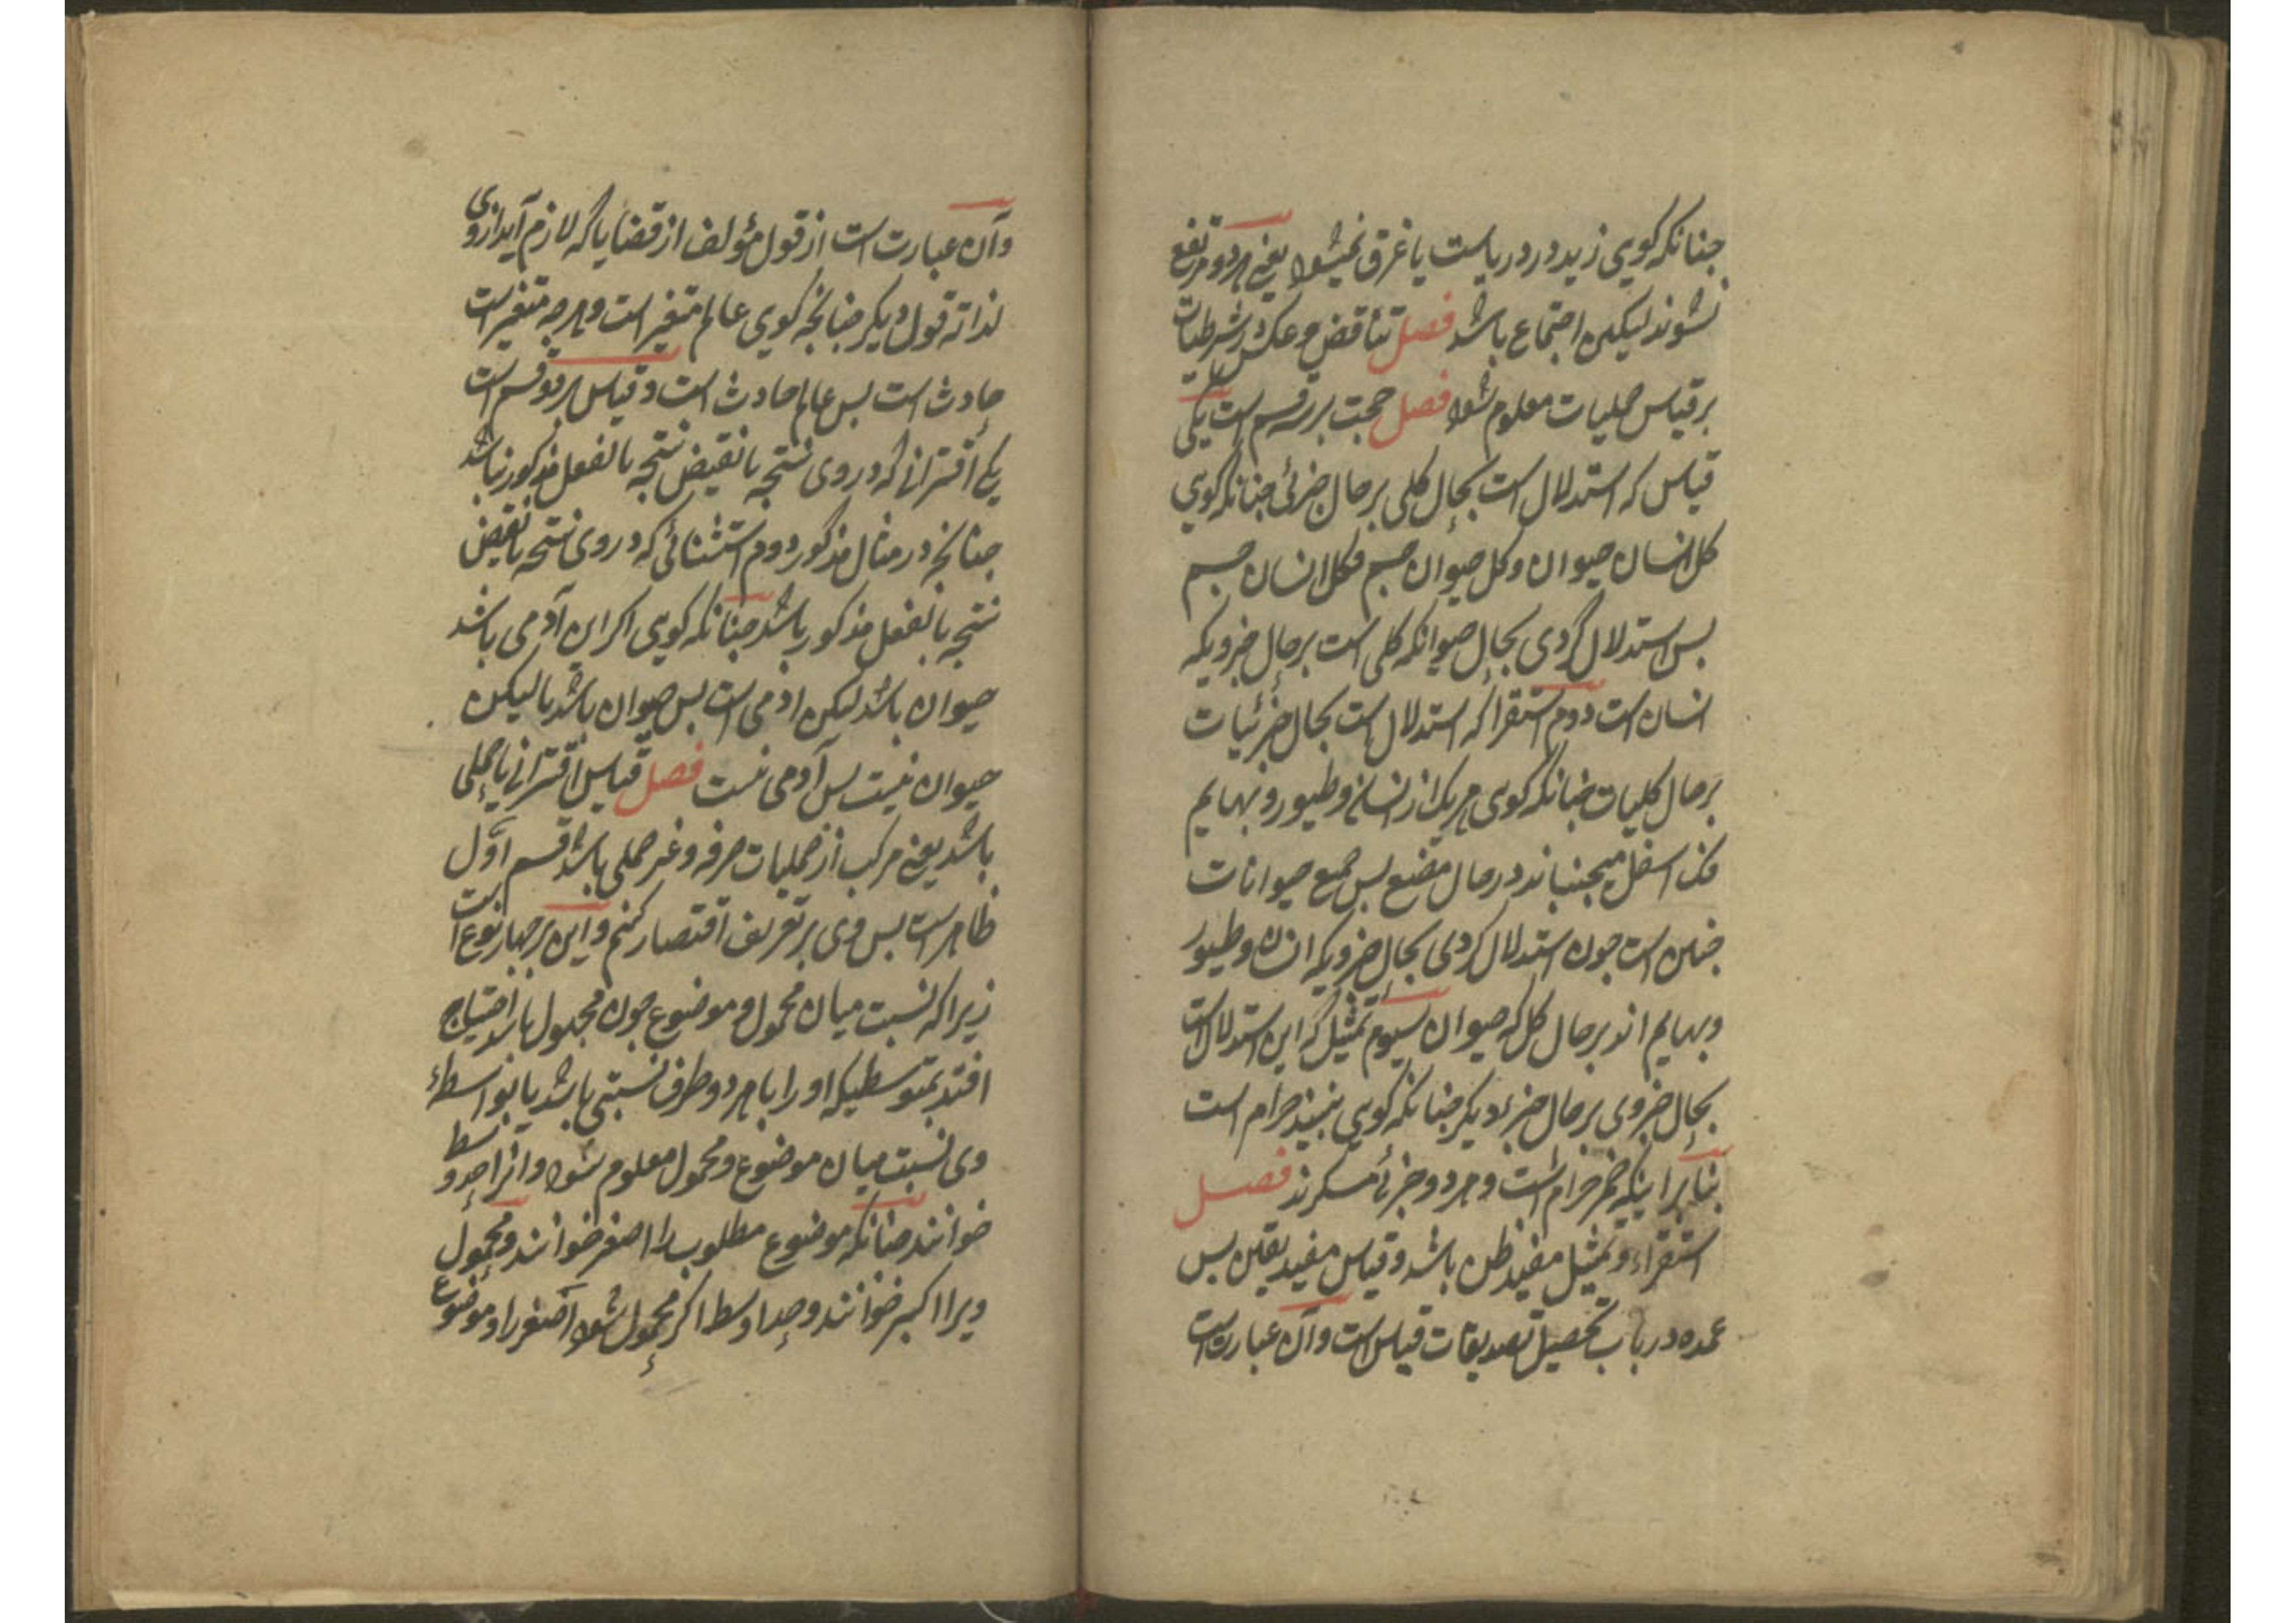 چنانکه کوی زید در دریاست یا غرق نمیشود یعنی هر دو مرتفع
نشوند لیکن اجتماع باشد فصل تناقض و عکس در شرطیات
بر قیاس حملیات معلوم شود فصل حجت بر سه قسم است یکی
قیاس که استدلال است بحال کلی بر حال جزئی چنانکه کوی
کل انسان حیوان و کل حیوان جسم فکل انسان جسم
بس استدلال کردی بحال حیوانکه کلی است بر حال جزویکه
انسان است دوم استقرا که استدلال است بحال جزئیات
بر حال کلیات چنانکه کوی هر یک از انسان و طیور و بهایم
فک اسفل میجنباند در حال مضغ بس جمیع حیوانات
چنین است چون استدلال کردی بحال جزویکه انسان و طیور
و بهایم اند بر حال کل که حیوان سیوم تمثیل که این استدلال است
بحال جزوی بر حال جزء دیکر چنانکه کوی نبیذ حرام است
بنا برا ینکه خمر حرام است و هر دو جزئی مسکرند فصل
استقراء و تمثیل مفید ظن باشد و قیاس مفید یقین بس
عمده در باب تحصیل تصدیقات قیاس است و آن عبارت است
وآن عبارت است از قول مؤلف از قضایا که لازم آید از وی
لذاته قول دیکر چنانچه کوی عالم متغیر است و هر چه متغیر است
حادث است بس عالم حادث است و قیاس بر دو قسم است
یکی اقترانی که در وی نتیجه یا نقیض نتیجه بالفعل مذکور نباشد
چنانچه در مثال مذکور دوم استثنائی که در وی نتیجه یا نقیض
نتیجه بالفعل مذکور باشد چنانکه کوی اکر این آدمی باشد
حیوان باشد لیکن ادمی است بس حیوان باشد یا لیکن
حیوان نیست بس آدمی نیست فصل قیاس اقترانی یا حملی
باشد یعنی مرکب از حملیات صرفه و غیر حملی باشد قسم اول
ظاهر است بس وی بر تعریف اقتصار کنم و این بر چهار نوع است
زیرا که نسبت میان محمول و موضوع چون مجهول باشد احتیاج
افتد بمتوسطیکه او را با هر دو طرف نسبتی باشد یا بواسطهٔ
وی نسبت میان موضوع و محمول معلوم شود و انرا حد وسط
خوانند چنانکه موضوع مطلوب را اصغر خوانند و محمول
ویرا اکبر خوانند و حد اوسط اکر محمول شود اصغر را و موضوع